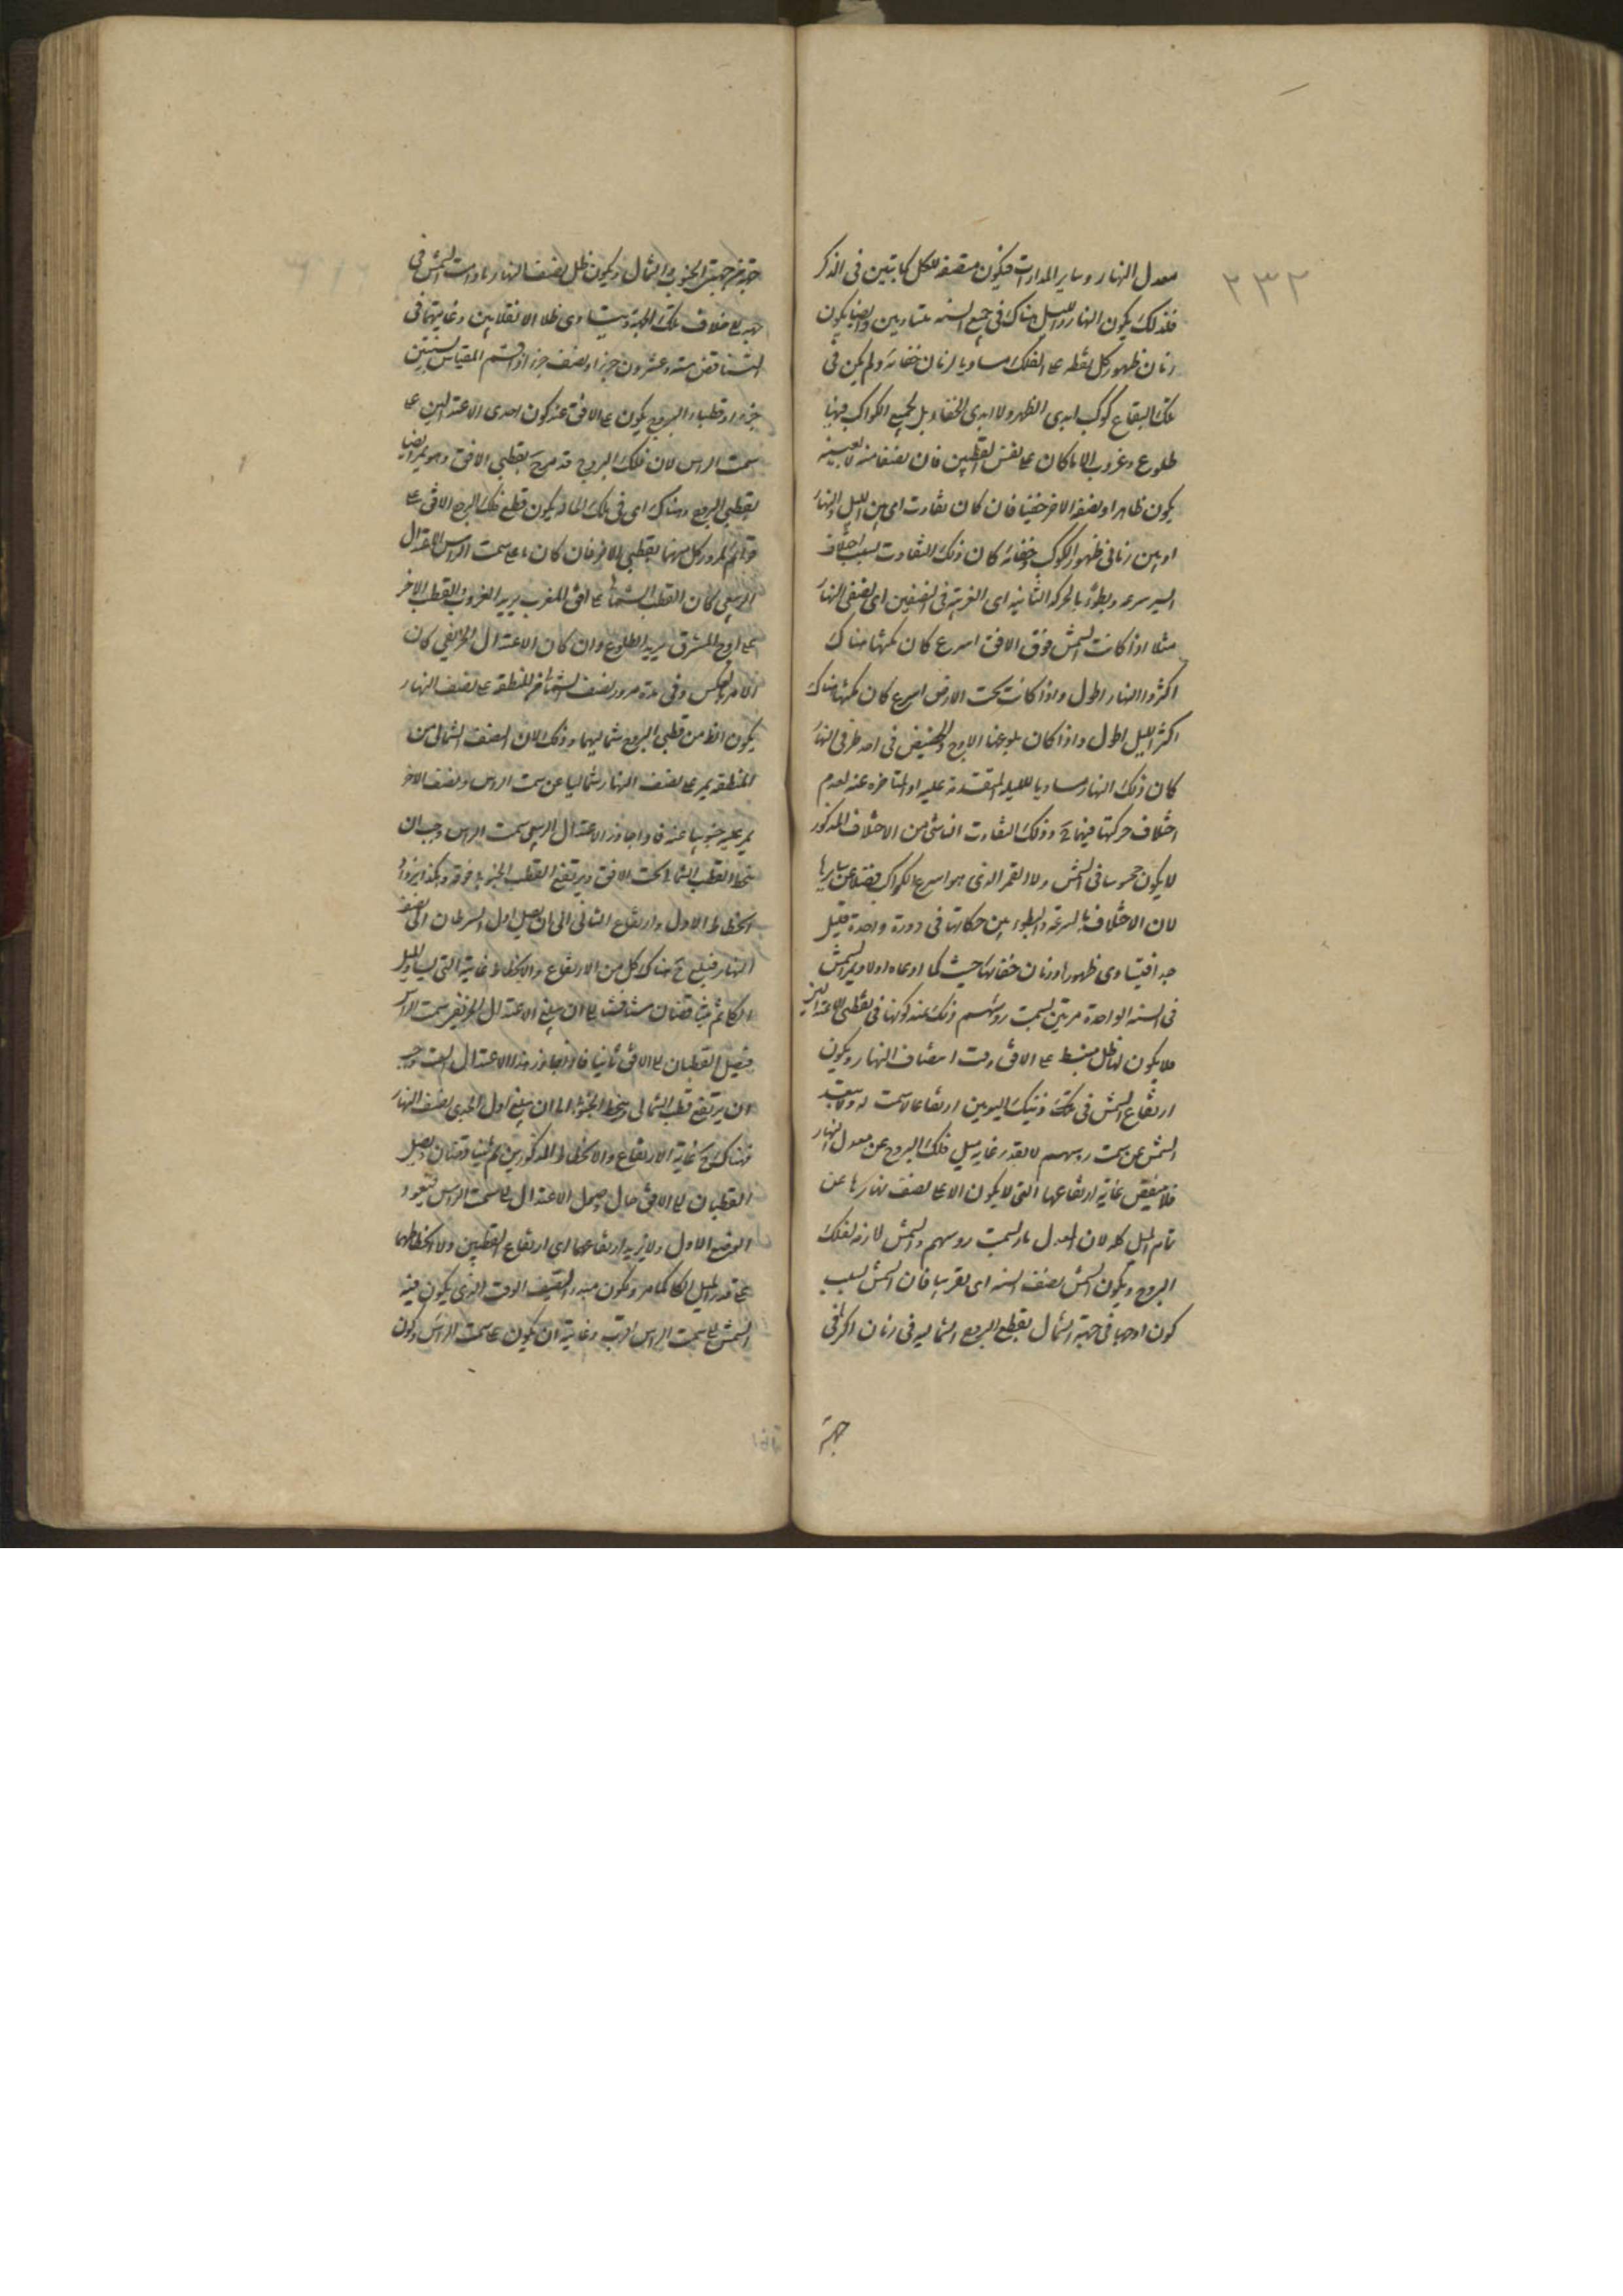 ٢٣٢
معدل النهار وساير المدارات فيكون منصفه للكل كما تبين فى الذكر
فلذلك يكون النهار والليل هناك فى جميع السنه متساويين وايضا يكون
زمان ظهور كل نقطه على الفلك مساويا لزمان خفائه ولم يكن فى
تلك البقاع كوكب ابدى الظهور ولا ابدى الخفاء بل لجميع الكواكب فيها
طلوع وغروب الا ما كان على نفس القطبين فان نصفا منه لا بعينه
يكون ظاهرا ونصفه الاخر خفيا فان كان تفاوت اى بين الليل والنهار
او بين زمانى ظهور الكوكب وخفائه كان ذلك التفاوت بسبب اختلاف
السير سرعه وبطؤ بالحركه الثانيه اى الغربيه فى النصفين اى نصفى النهار
مثلا اذا كانت الشمس فوق الافق اسرع كان مكثها هناك
اكثر والنهار اطول واذا كانت تحت الارض اسرع كان مكثها هناك
اكثر والليل اطول واذا كان بلوغها الاوج والحضيض فى احد طرفى النهار
كان ذلك النهار مساويا لليله المتقدمة عليه او المتاخره عنه لعدم
اختلاف حركتها فيهما وذلك التفاوت الناشى من الاختلاف المذكور
لا يكون محسوسا فى الشمس ولا القمر الذى هو اسرع الكواكب فضلا عن سايرها
لان الاختلاف بالسرعة والبطوء بين حركاتها فى دورة واحدة قليل
جدا فيتساوى ظهورها وزمان خفائها حسا كما ادعاه اولا ويمر الشمس
فى السنه الواحدة مرتين بسمت روسهم وذلك عند كونها فى نقطتى الاعتدالين
فلا يكون لها ظل منبسط على الافق وقت انتصاف النهار ويكون
ارتفاع الشمس فى ذينك اليومين ارتفاعا لا سمت له ولا يبعد
الشمس عن سمت روسهم الا بقدر غايه ميل فلك البروج عن معدل النهار
فلا ينقص غاية ارتفاعها التى لا يكون الا على نصف نهارها عن
تمام الميل كله لان المعدل مار بسمت روسهم والشمس لازمه لفلك
البروج ويكون الشمس نصف السنه اى تقريبا فان الشمس بسبب
كون اوجها فى جهة الشمال يقطع البروج الشماليه فى زمان اكثر فى
جهة
جهة من جهتى الجنوب والشمال ويكون ظل نصف النهار ما دامت الشمس فى
جهة على خلاف تلك الجهة ويتساوى ظلا الانقلابين وغايتهما فى
التناقص سته وعشرون جزءا ونصف جزء اذا قسم المقياس بستين
جزءا وقطبا البروج يكون على الافق عند كون احدى الاعتدالين على
سمت الراس لان فلك البروج قد مر ح بقطبى الافق وهو يمر ايضا
بقطبى البروج وهناك اى فى تلك الحاله يكون قطع فلك البروج الافق على
قوائم لمرور كل منهما بقطبى الاخر فان كان على سمت الراس الاعتدال
الربيعى كان القطب الشمالى على افق المغرب يريد الغروب والقطب الاخر
على افق المشرق يريد الطلوع وان كان الاعتدال الخريفى كان
الامر بالعكس وفى مدة مرور نصف الشمالى من المنطقه على نصف النهار
يكون الظ من قطبى البروج شماليهما وذلك لان النصف الشمالى من
المنطقه يمر على نصف النهار شماليا عن سمت الراس ونصف الاخر
يمر عليه جنوبيا عنه فاذا جاوز الاعتدال الربيعى سمت الراس وجب ان
ينحط القطب الشمالى تحت الافق ويرتفع القطب الجنوبى فوقه وهكذا يزداد
انحطاط الاول وارتفاع الثانى الى ان يصل اول السرطان الى نصف
النهار فيبلغ ح هناك كل من الارتفاع والانحطاط غايته التى يساوى الميل
الكلى ثم يتناقصان شيئا فشيئا الى ان يبلغ الاعتدال الخريفى سمت الراس
فيصل القطبان الى الافق ثانيا فاذا جاوز هذا الاعتدال السمت وجب
ان يرتفع قطب الشمالى وينحط الجنوبى الى ان يبلغ اول الجدى نصف النهار
فهناك ح غاية الارتفاع والانحطاط المذكورين ثم يتناقصان ويصل
القطبان الى الافق حال وصول الاعتدال الى سمت الراس فيعود
الوضع الاول ولا يزيد ارتفاعهما اى ارتفاع القطبين ولا انحطاطهما
على قدر الميل الكلى كما مر ويكون مبدء الصيف الوقت الذى يكون فيه
الشمس الى سمت الراس اقرب وغايته ان يكون على سمت الراس وكون